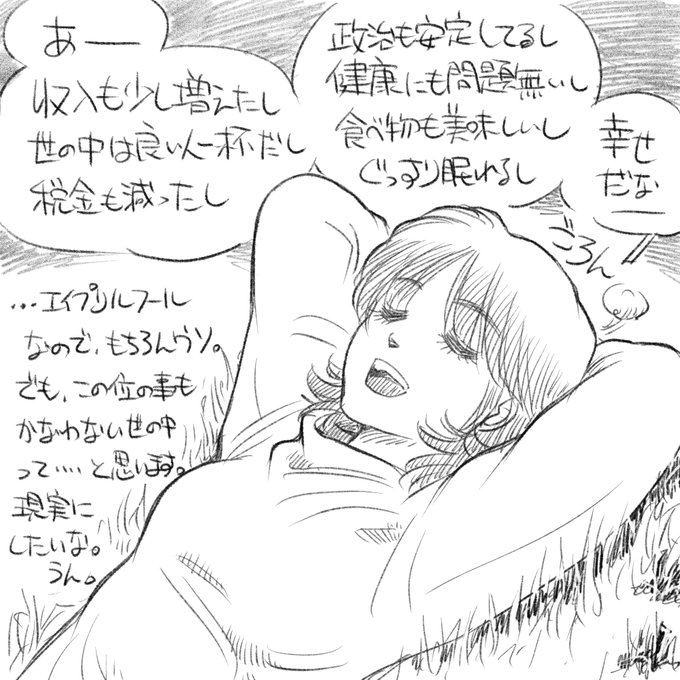 あーー
収入も少し増えたし
世の中は良い人一杯だし
税金も減ったし
政治も安定してるし
健康にも問題無いし
食べ物も美味しいし
ぐっすり眠れるし
幸せ
だなー
ごろん
…エイプリルフール
なので、もちろんウソ。
でも、この位の事も
かなわない世の中
って‥‥と思います。
現実に
したいな。
うん。